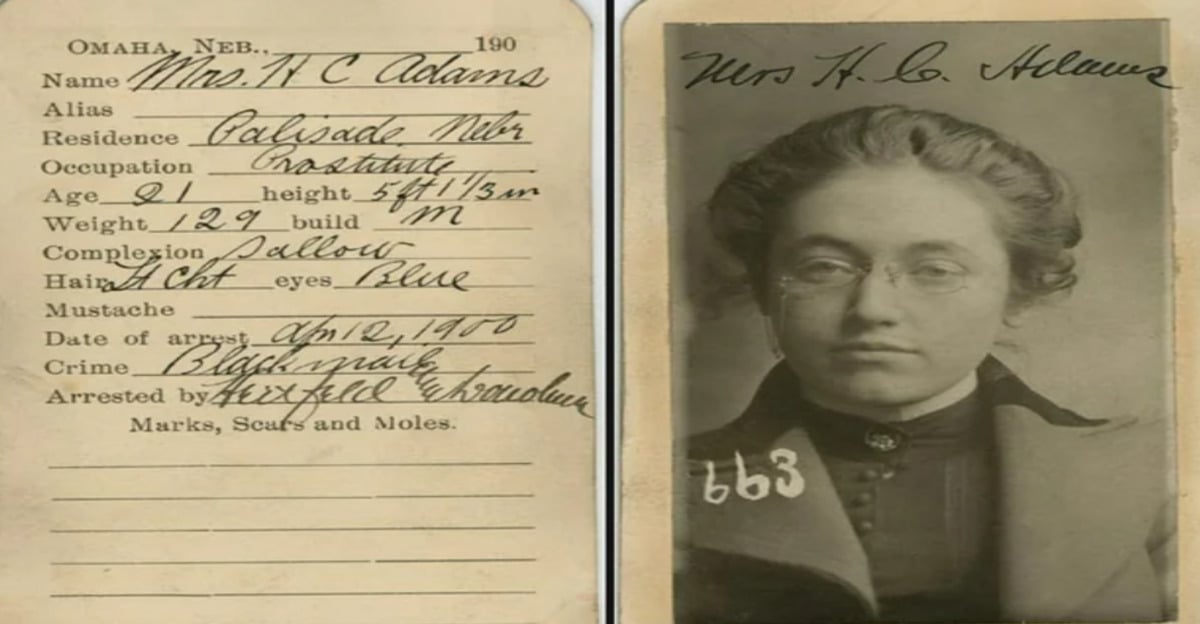 OMAHA, NEB., 190
Name Mrs. H C Adams
Alias
Residence Palisade, Nebr
Occupation Prostitute
Age 21 height 5 ft 1 1/3 in
Weight 129 build M
Complexion Sallow
Hair eyes Blue
Mustache
Date of arrest Apr 12, 1900
Crime Blackmail
Arrested by
Marks, Scars and Moles.
Mrs H. C. Adams
663